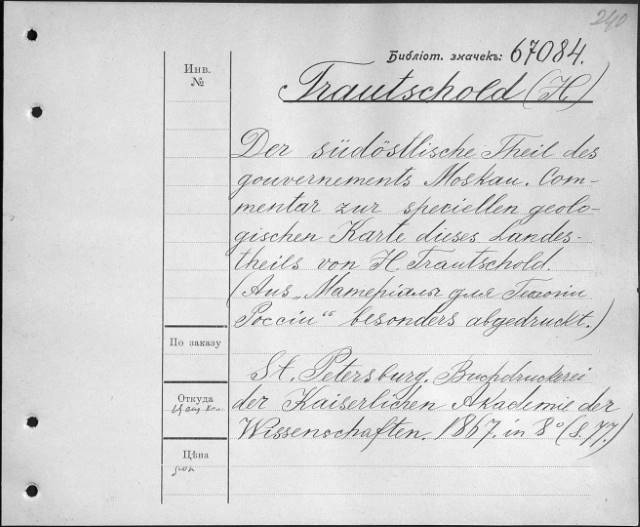 240
Библіот. значекъ: 67084.
Инв.
№
Trautschold (H.)
Der südöstlische Theil des
gouvernements Moskau. Com-
mentar zur speciellen geolo-
gischen Karte dieses Landes-
theils von H. Trautschold.
(Aus „Матеріалы для Геологіи
Россіи“ besonders abgedruckt.)
По заказу
St. Petersburg. Buchdruckerei
Откуда
der Kaiserlichen Akademie der
Wissenschaften. 1867. in 8° (S. 77.)
Цѣна